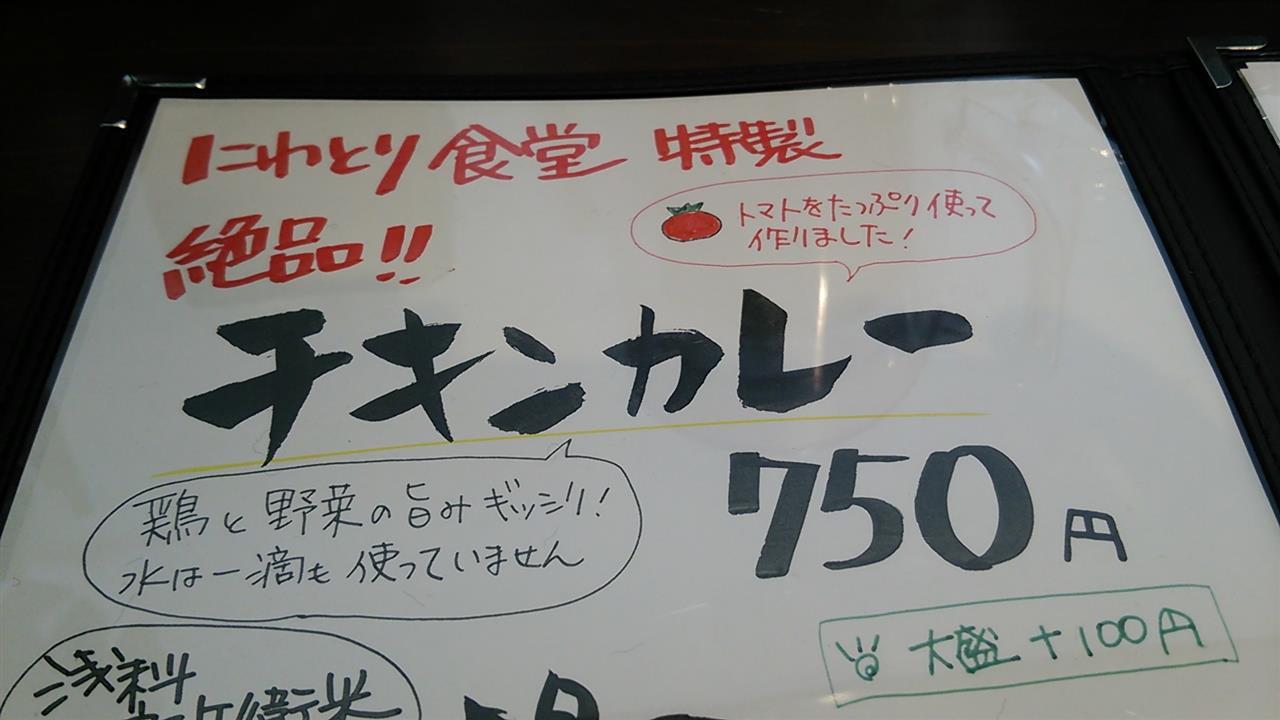 にわとり食堂 特製
絶品!!
トマトをたっぷり使って
作りました!
チキンカレー
鶏と野菜の旨みギッシリ!
水は一滴も使っていません
750円
大盛+100円
浅科